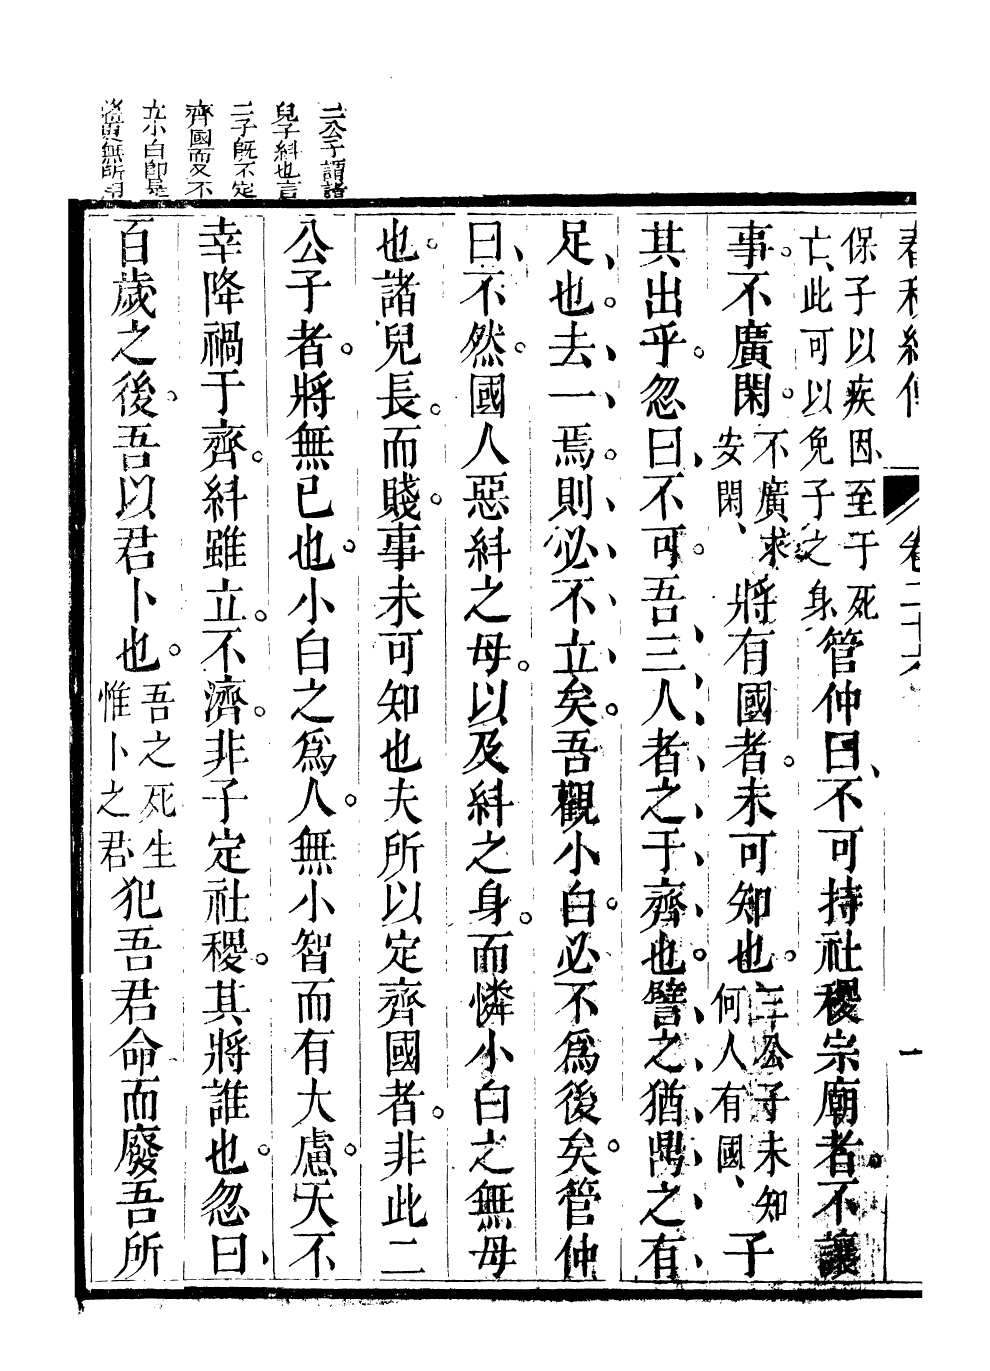 春秋經傳
卷二十
一
二公子謂諸
兒子糾也言
二子既不定
齊國而又不
立小白即是
將更無所
保子以疾因、至于死
亡、此可以免子之身
管仲曰、不可持社稷宗廟者。不讓
事。不廣閑。
不廣求
安閑、
將有國者。未可知也。
三公子未知
何人有國、
子
其出乎。忽曰、不可。吾三人者之于齊也。譬之猶鼎之有
足也。去一焉。則必不立矣。吾觀小白。必不爲後矣。管仲
曰、不然。國人惡糾之母。以及糾之身。而憐小白之無母
也。諸兒長。而賤。事未可知也夫所以定齊國者。非此二
公子者。將無已也。小白之爲人。無小智而有大慮。天不
幸降禍于齊。糾雖立。不濟。非子定社稷。其將誰也。忽曰、
百歲之後。吾以君卜也。
吾之死生
惟卜之君
犯吾君命而廢吾所